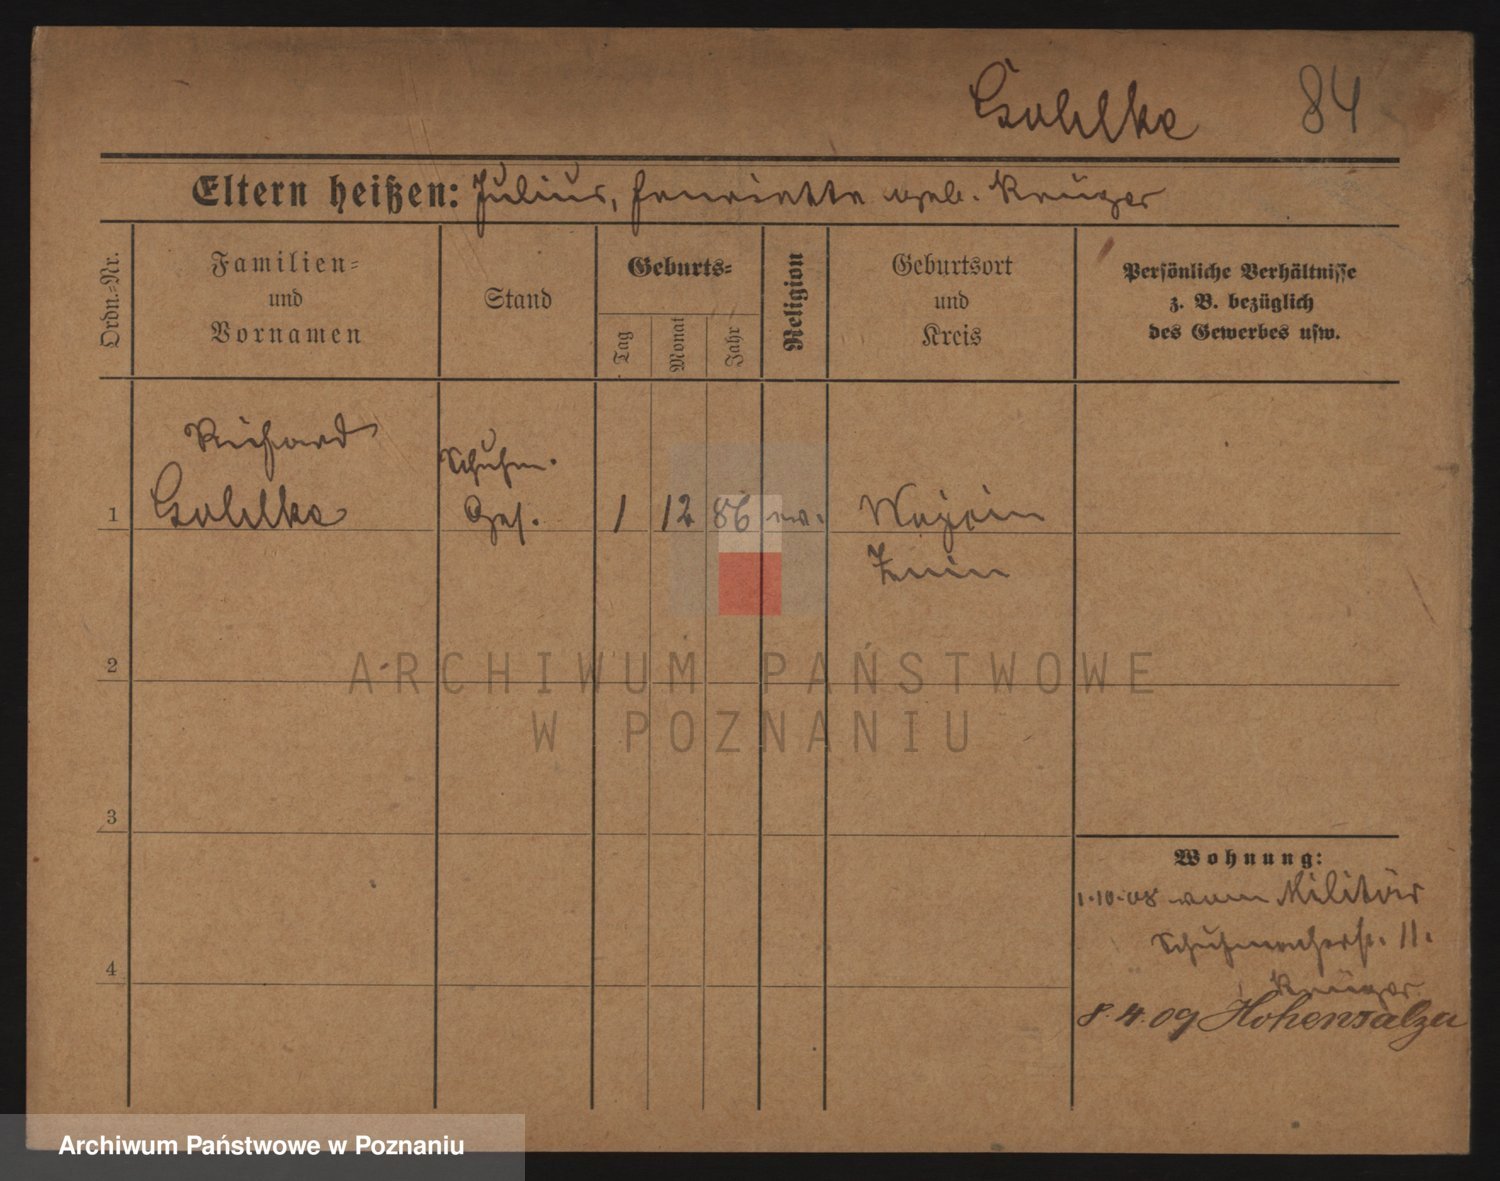 Gohlke 84
Eltern heißen: Julius, Henriette geb. Krüger
Ordn.-Nr.
Familien-
und
Vornamen
Stand
Geburts-
Tag
Monat
Jahr
Religion
Geburtsort
und
Kreis
Persönliche Verhältnisse
z. B. bezüglich
des Gewerbes usw.
Richard
Schuhm.
1 Gohlke Ges. 1 12 86 ev.
Znin
2
ARCHIWUM PAŃSTWOWE
W POZNANIU
3
Wohnung:
1.10.08 vom Militär
Schuhmacherstr. 11.
4
Krüger
8.4.09 Hohensalza
Archiwum Państwowe w Poznaniu